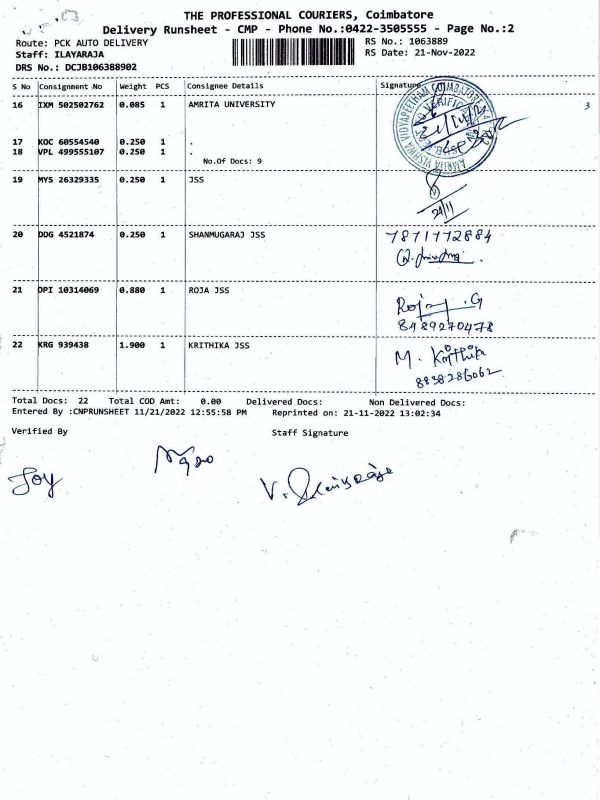 THE PROFESSIONAL COURIERS, Coimbatore
Delivery Runsheet - CMP - Phone No.:0422-3505555 - Page No.:2
Route: PCK AUTO DELIVERY
RS No.: 1063889
Staff: ILAYARAJA
RS Date: 21-Nov-2022
DRS No.: DCJB106388902
S No Consignment No Weight PCS Consignee Details Signature
16 IXM 502502762 0.085 1 AMRITA UNIVERSITY
17 KOC 60554540 0.250 1 .
18 VPL 499555107 0.250 1 .
No.Of Docs: 9
19 MYS 26329335 0.250 1 JSS
21/11
20 DDG 4521874 0.250 1 SHANMUGARAJ JSS
7871772884
21 DPI 10314069 0.880 1 ROJA JSS
Roja .G
8489270478
22 KRG 939438 1.900 1 KRITHIKA JSS
M. Krithika
8838286062
Total Docs: 22 Total COD Amt: 0.00 Delivered Docs: Non Delivered Docs:
Entered By :CNPRUNSHEET 11/21/2022 12:55:58 PM Reprinted on: 21-11-2022 13:02:34
Verified By Staff Signature
Joy